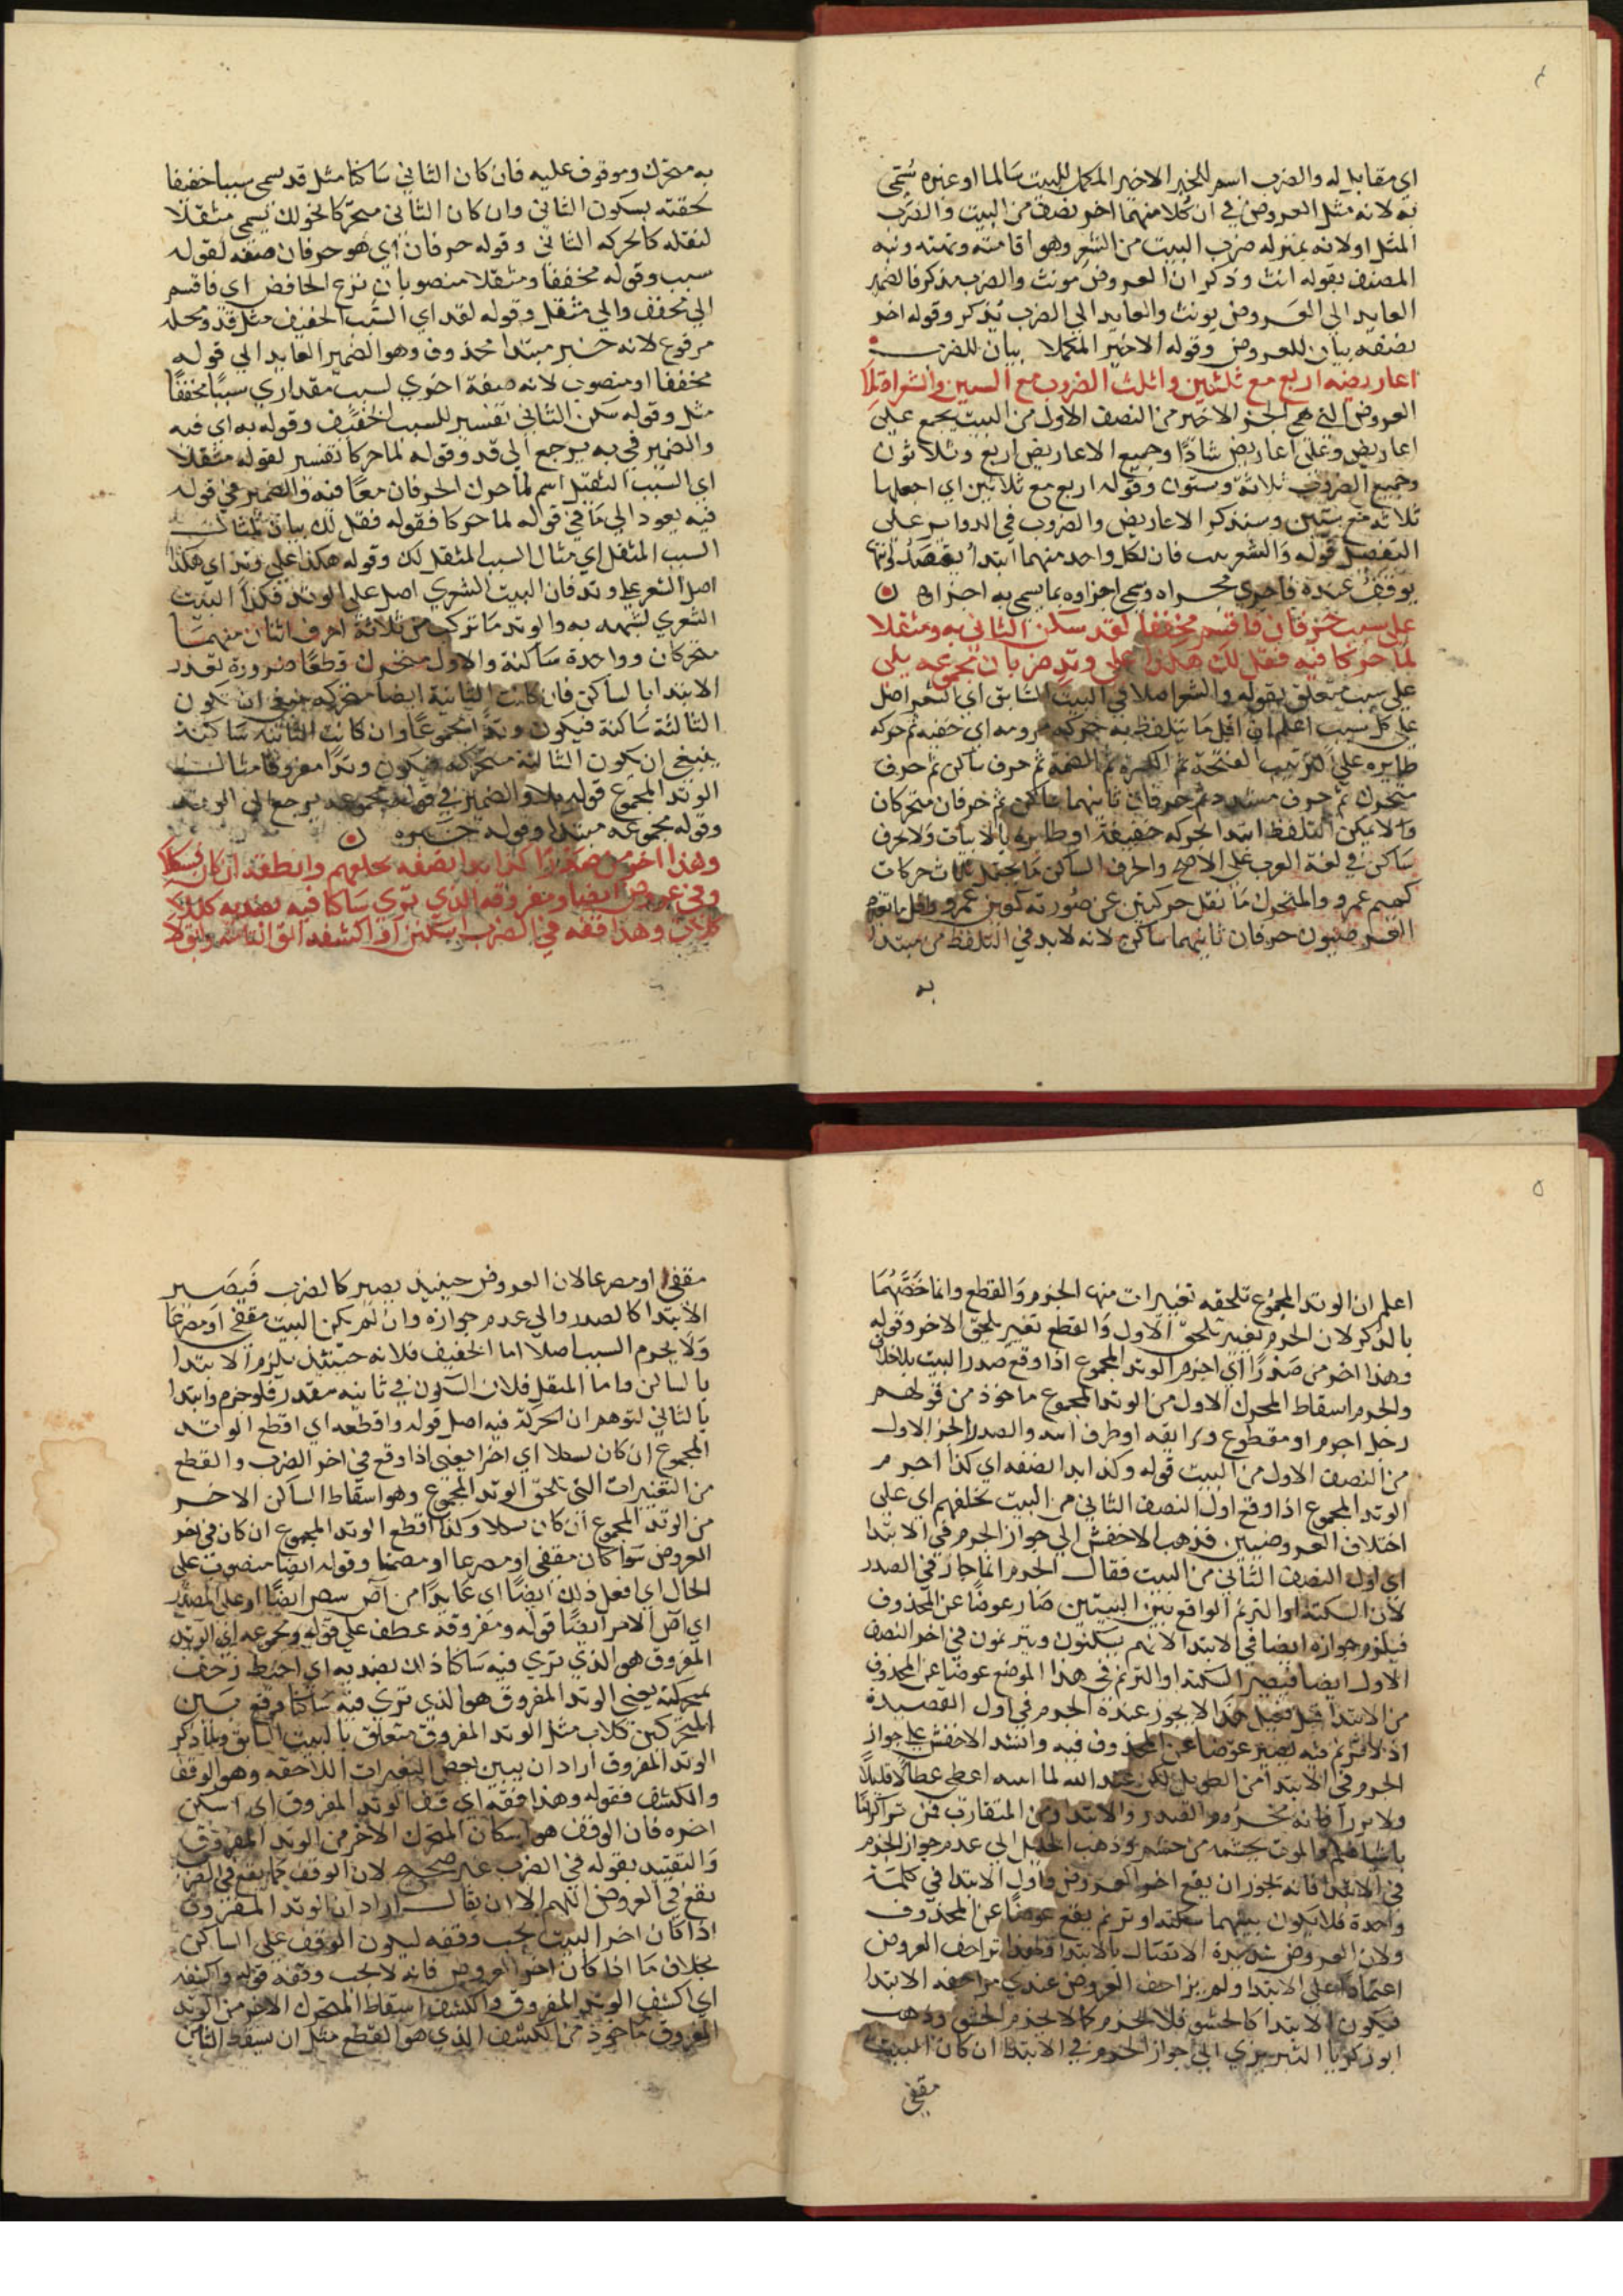 اي مقابل له والضرب اسم للجزء الاخير المكمل للبيت سالما او غيره سُمّى
به لانه مثل العروض في ان كلا منهما اخر نصف من البيت والضرب
المثل اولانه بمنزله ضرب البيت من الشعر وهو اقامته وتمته ونبه
المصنف بقوله انث وذكر ان العروض مونث والضرب مذكر فالضمير
العايد الى العروض يونث والعايد الي الضرب يُذكر وقوله اخر
نصفه بيان للعروض وقوله الاخير المكملا بيان للضرب
اعاريضه اربع مع ثلثين واثلث الضروب مع الستين والشعراة
العروض التي هى الجز الاخير من النصف الاول من البيت يجمع على
اعاريض وعلى اعاريض شاذًا وجميع الاعاريض اربع وثلاثون
وجميع الضروب ثلاثة وستون وقوله اربع مع ثلاثين اي اجعلها
ثلاثة مع ستين وسنذكر الاعاريض والضروب في الدواير على
التفصيل قوله والشعر فان لكل واحد منهما ابتدا يقصد
يوقف عنده فاجري مجراه وسمى اجزاوه بما يسمى به اجزاه
على سبب حرفان فاقسم مخففا لقد سكن الثاني به ومثقلا
لما حركا فيه فقل لك هكذا على وتد ضربان مجموعه يلى
على سبب متعلق بقوله والشعر اصلا في البيت السابق اي الشعر اصل
على كل سبب اعلم ان اقل ما يتلفظ به حركه مرومه اي خفيه ثم حركه
ظاهره على الترتيب الفتحة ثم الكسره ثم الضمة ثم حرف ساكن ثم حرف
متحرك ثم حرف مشدد ثم حرفان ثانيهما ساكن ثم حرفان متحركان
ولا يمكن التلفظ ابتدا بحركه خفيفة او ظاهره بالاثبات ولا بحرف
ساكن في لغة العرب على الاصح والحرف الساكن ما يحتمل ثلاث حركات
كميم عمرو والمتحرك ما نقل حركتين عن صورته كعين عمرو واقل ما
العروضيون حرفان ثانيهما ساكن لانه لابد في التلفظ من مبتدا
به
به متحرك وموقوف عليه فان كان الثاني ساكنا مثل قد سمى سببا خفيفا
لخفته بسكون الثاني وان كان الثاني متحركا نحو لك يسمى مثقلا
لثقله كالحركه الثاني وقوله حرفان اي هو حرفان صفه لقوله
سبب وقوله مخففا ومثقلا منصوبان بنزع الخافض اي فاقسم
الي مخفف والي مثقل وقوله لقد اي السبب الخفيف مثل قد ومحله
مرفوع لانه خبر مبتدا محذوف وهو الضمير العايد الى قوله
مخففا او منصوب لانه صفة اخري لسبب مقدر اي سببًا مخففًا
مثل وقوله سكن الثاني تفسير للسبب الخفيف وقوله به اي فيه
والضمير في به يرجع الي قد وقوله لما حركا تفسير لقوله مثقلا
اي السبب الثقيل اسم لما حرك الحرفان معًا فيه والضمير في قوله
فيه يعود الي ما في قوله لما حركا فقوله فقل لك بيان لمثال
السبب المثقل اي مثال السبب المثقل لك وقوله هكذا على وتد اي هكذا
اصل الشعر علي وتد فان البيت الشعري اصل على الوتد فكذا البيت
الشعري لشبهه به والوتد ما تركب من ثلاثة احرف اثنان منهما
متحركان وواحدة ساكنة والاول متحرك قطعًا ضرورة تعذر
الابتدا بالساكن فان كانت الثانية ايضا متحركه ينبغي ان يكون
الثالثة ساكنة فيكون وتدًا مجموعًا وان كانت الثانيه ساكنة
ينبغي ان يكون الثالثة متحركه فيكون وتدًا مفروقا مثال
الوتد المجموع قوله يلا والضمير في قوله مجموعه يرجع الي الوتد
وقوله مجموعه مبتدا وقوله خبره
وهذا اخرمن صدرًا كذا ابتدا نصفه بخلفهم واقطعه ان كان
وفي عروض ايضا ومفروقه الذي تري ساكنا فيه بضديه
كلات وهذا قفه في الضرب
اعلم ان الوتد المجموع تلحقه تغييرات منها الخرم والقطع وانما خصّهُما
بالذكر لان الخرم تغيير يلحق الاول والقطع تغيير يلحق الاخر وقوله
وهذا اخرمن صدرًا اي اخرم الوتد المجموع اذا وقع صدر البيت بلاخلاف
والخرم اسقاط المحرك الاول من الوتد المجموع ماخوذ من قولهم
رجل اخرم او مقطوع وترا انفه او طرف انفه والصدر الجز الاول
من النصف الاول من البيت قوله وكذا ابدا نصفه اي كذا اخرم
الوتد المجموع اذا وقع اول النصف الثاني من البيت بخلفهم اي على
اختلاف العروضيين فذهب الاخفش الي جواز الخرم في الابتدا
اي اول النصف الثاني من البيت فقال الخرم انما جاز في الصدر
لان السكتة او الترنم الواقع بين البيتين صار عوضًا عن المحذوف
فيلزم جوازه ايضا في الابتدا لانهم يسكتون ويترنمون في اخر النصف
الاول ايضا فيصير السكته او الترنم في هذا الموضع عوضًا عن المحذوف
من الابتدا لا يجوز عنده الخرم في اول القصيدة
اذ لا ترنم فيه يصير عوضا عن المحذوف فيه وانشد الاخفش على جواز
الخرم في الابتدا من الطويل لكن عبد الله لما اعطى عطا لا قليلًا
ولا نزرا فانه مخروم الصدر والابتدا ومن المتقارب
وذهب الخليل الى عدم جواز الخرم
في الابتدا فانه يجوز ان يقع اخر العروض واول الابتدا في كلمة
واحدة فلا يكون بينهما سكته او ترنم يقع عوضًا عن المحذوف
ولان العروض شديدة الاتصال بالابتدا تزاحف العروض
اعتمادا على الابتدا ولم يزاحف العروض عندي مزاحفه الابتدا
فيكون الابتدا كالحشو فلا يخرم كما لا يخرم الحشو وذهب
ابو زكريا التبريزي الي جواز الخرم في الابتدا ان كان البيت
مقفى
مقفي او مصرعا لان العروض حينيذ يصير كالضرب فيصير
الابتدا كالصدر والي عدم جوازه وان لم يكن البيت مقفي او مصرعا
ولا يخرم السبب اصلا اما الخفيف فلانه حينئذ يلزم الابتدا
بالساكن واما المثقل فلان السكون في ثانيه مقدر فلو خرم وابتدا
بالثاني لتوهم ان الحركة فيه اصل قوله واقطعه اي اقطع الوتد
المجموع ان كان اي اخرا يعني اذا وقع في اخر الضرب والقطع
من التغييرات التي تلحق الوتد المجموع وهو اسقاط الساكن الاخر
من الوتد المجموع ان كان وكذا اقطع الوتد المجموع ان كان في اخر
العروض سوا كان مقفي او مصرعا او مصمتا وقوله ايضا منصوب على
الحال اي افعل ذلك ايضًا اي عايدًا من آض ايضًا او على المصدر
اي آض الامر ايضًا قوله ومفروقه عطف على قوله ومجموعه اي الوتد
المفروق هو الذي تري فيه ساكنا ذلك بضديه اي
بحركته يعني الوتد المفروق هو الذي تري فيه ساكنا وقع بين
المتحركين كلات مثل الوتد المفروق متعلق بالبيت السابق ولما ذكر
الوتد المفروق اراد ان يبين بعض التغيرات اللاحقه وهو الوقف
والكشف فقوله وهذا قفه اي قف الوتد المفروق اي اسكن
اخره فان الوقف هو اسكان المتحرك الاخر من الوتد المفروق
والتقييد بقوله في الضرب غير صحيح لان الوقف كما يقع في الضرب
يقع في العروض اللهم الا ان يقال اراد ان الوتد المفروق
اذا كان اخر البيت يجب وقفه ليكون الوقف على الساكن
بخلاف ما اذا كان اخر العروض فانه لا يجب وقفه قوله واكشفه
اي اكشف الوتد المفروق والكشف اسقاط المتحرك الاخر من الوتد
المفروق ماخوذ من الكشف الذي هو القطع مثل ان يسقط التا من